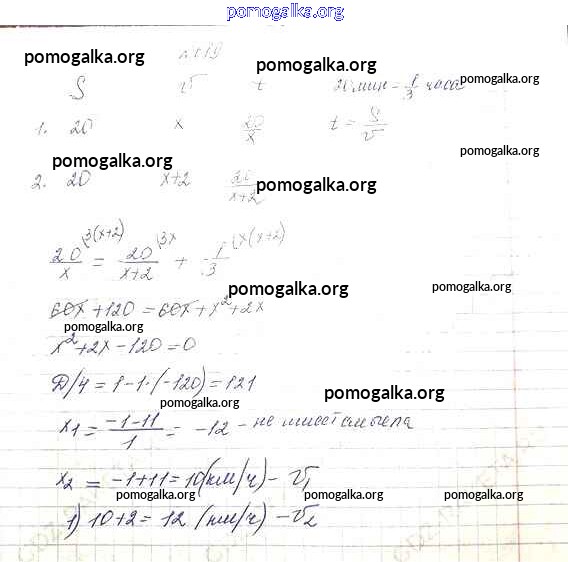 pomogalka.org
pomogalka.org pomogalka.org
S v t 20 мин = 1/3 часа pomogalka.org
1. 20 x 20/x t = S/v
pomogalka.org pomogalka.org
2. 20 x+2 20/x+2 pomogalka.org
20/x \3(x+2) = 20/x+2 \3x + 1/3 \x(x+2)
pomogalka.org pomogalka.org
60x + 120 = 60x + x² + 2x
pomogalka.org
x² + 2x - 120 = 0
Д/4 = 1 - 1·(-120) = 121
pomogalka.org pomogalka.org
x1 = -1-11/1 = -12 - не имеет смысла
x2 = -1+11 = 10 (км/ч) - v1
pomogalka.org pomogalka.org pomogalka.org
1) 10+2 = 12 (км/ч) - v2